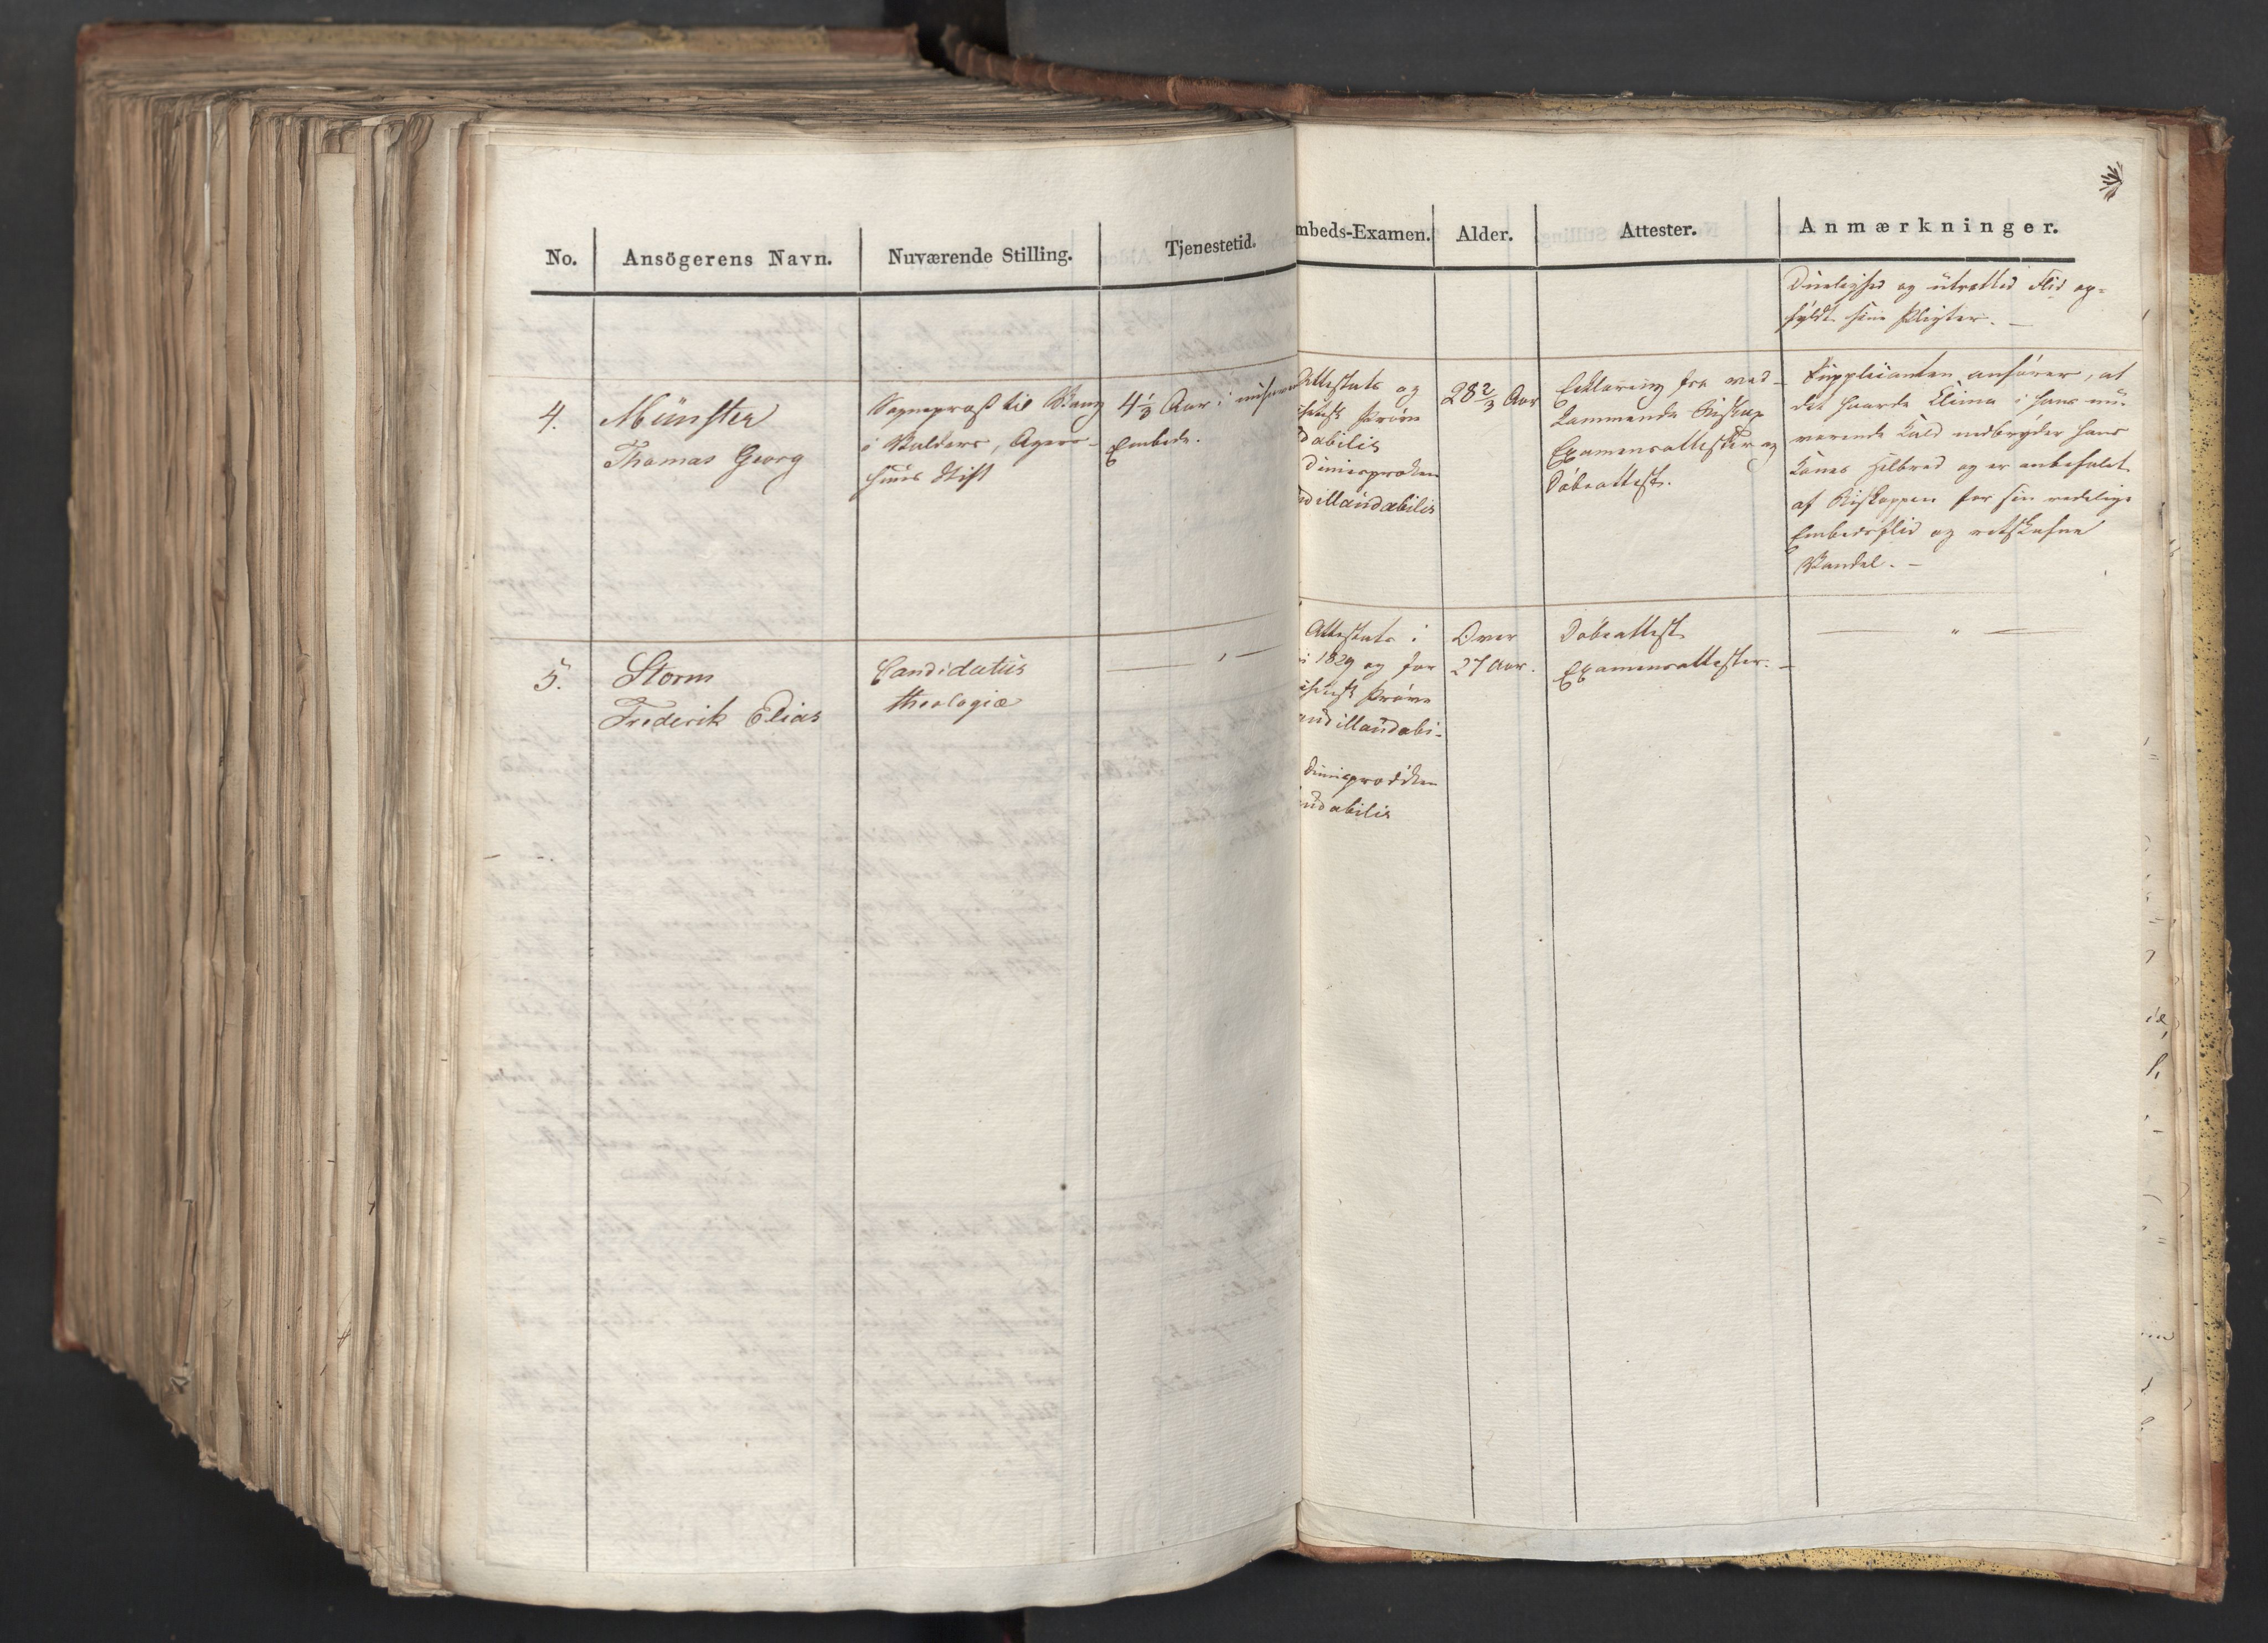 No.
Ansögerens Navn.
Nuværende Stilling.
Tjenestetid.
mbeds-Examen.
Alder.
Attester.
Anmærkninger.
Duelighed og udrettet Flid op=
fyldt sine Pligter. —
4.
Münster
Thomas Georg
Sognepræst til Vang
i Valders, Agers-
huus Stift
4⅓ Aar i
Embede.
Attestats og
Prøve
dabilis
Dimisprøken
d illaudabilis
28⅔ Aar
Erklæring fra ved-
kommende Biskop
Examensattester og
Døbeattest.
Supplicanten anfører, at
det haarde Clima i hans nu-
værende Kald nedbryder hans
Kones Helbred og er anbefalet
af Biskoppen for sin redelige
Embedsflid og retskafne
Vandel. —
5.
Storm
Frederik Elias
Candidatus
theologiæ
— " —
Attestats i
i 1829 og for
Prøve
aud illaudabi-
Dimisprøken
udabilis
Over
27 Aar.
Døbeattest
Examensattester. —
— " —